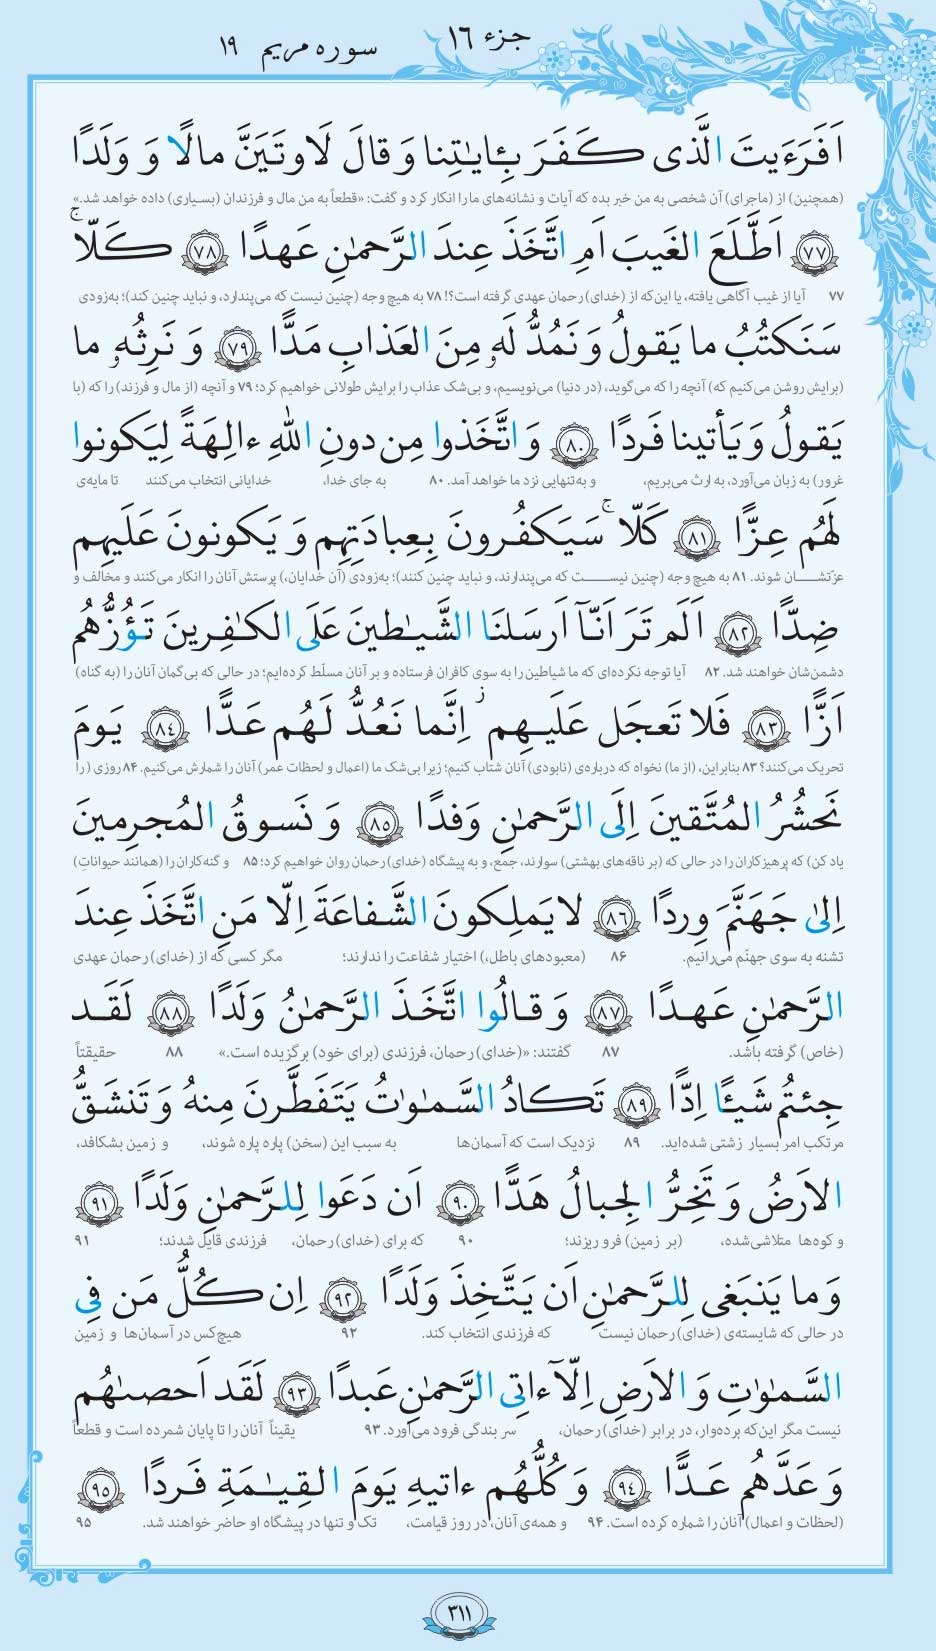 جزء ۱۶
سوره مریم ۱۹
اَفَرَءَیتَ الَّذی کَفَرَ بِـٔایاٰتِنا وَ قالَ لَاوتَیَنَّ مالًا وَ وَلَدًا
(همچنین) از (ماجرای) آن شخصی به من خبر بده که آیات و نشانه‌های ما را انکار کرد و گفت: «قطعاً به من مال و فرزندان (بسیاری) داده خواهد شد.»
﴿۷۷﴾ اَطَّلَعَ الغَیبَ اَمِ اتَّخَذَ عِندَ الرَّحمٰنِ عَهدًا ﴿۷۸﴾ کَلّا ۚ
۷۷ آیا از غیب آگاهی یافته، یا این‌که از (خدای) رحمان عهدی گرفته است؟! ۷۸ به هیچ وجه (چنین نیست که می‌پندارد، و نباید چنین کند)؛ به‌زودی
سَنَکتُبُ ما یَقولُ وَ نَمُدُّ لَهٗ مِنَ العَذابِ مَدًّا ﴿۷۹﴾ وَ نَرِثُهٗ ما
(برایش روشن می‌کنیم که) آنچه را که می‌گوید، (در دنیا) می‌نویسیم، و بی‌شک عذاب را برایش طولانی خواهیم کرد؛ ۷۹ و آنچه (از مال و فرزند) را که (با
یَقولُ وَ یَأتینا فَردًا ﴿۸۰﴾ وَ اتَّخَذوا مِن دونِ اللهِ ءالِهَةً لِیَکونوا
غرور) به زبان می‌آورد، به ارث می‌بریم، و به‌تنهایی نزد ما خواهد آمد. ۸۰ به جای خدا، خدایانی انتخاب می‌کنند تا مایه‌ی
لَهُم عِزًّا ﴿۸۱﴾ کَلّا ۚ سَیَکفُرونَ بِعِبادَتِهِم وَ یَکونونَ عَلَیهِم
عزّتشان شوند. ۸۱ به هیچ وجه (چنین نیست که می‌پندارند، و نباید چنین کنند)؛ به‌زودی (آن خدایان)، پرستش آنان را انکار می‌کنند و مخالف و
ضِدًّا ﴿۸۲﴾ اَلَم تَرَ اَنّآ اَرسَلنَا الشَّیـٰطینَ عَلَی الکـٰفِرینَ تَؤُزُّهُم
دشمن‌شان خواهند شد. ۸۲ آیا توجه نکرده‌ای که ما شیاطین را به سوی کافران فرستاده و بر آنان مسلّط کرده‌ایم؛ در حالی که بی‌گمان آنان را (به گناه)
اَزًّا ﴿۸۳﴾ فَلا تَعجَل عَلَیهِم ؗ اِنَّما نَعُدُّ لَهُم عَدًّا ﴿۸۴﴾ یَومَ
تحریک می‌کنند؟ ۸۳ بنابراین، (از ما) نخواه که درباره‌ی (نابودی) آنان شتاب کنیم؛ زیرا بی‌شک ما (اعمال و لحظات عمر) آنان را شمارش می‌کنیم. ۸۴ روزی (را
نَحشُرُ المُتَّقینَ اِلَی الرَّحمٰنِ وَفدًا ﴿۸۵﴾ وَ نَسوقُ المُجرِمینَ
یاد کن) که پرهیزکاران را در حالی که (بر ناقه‌های بهشتی) سوارند، جمع، و به پیشگاه (خدای) رحمان روان خواهیم کرد؛ ۸۵ و گنه‌کاران را (همانند حیواناتِ)
اِلیٰ جَهَنَّمَ وِردًا ﴿۸۶﴾ لا یَملِکونَ الشَّفاعَةَ اِلّا مَنِ اتَّخَذَ عِندَ
تشنه به سوی جهنّم می‌رانیم. ۸۶ (معبودهای باطل،) اختیار شفاعت را ندارند؛ مگر کسی که از (خدای) رحمان عهدی
الرَّحمٰنِ عَهدًا ﴿۸۷﴾ وَ قالُوا اتَّخَذَ الرَّحمٰنُ وَلَدًا ﴿۸۸﴾ لَقَد
(خاص) گرفته باشد. ۸۷ گفتند: «(خدای) رحمان، فرزندی (برای خود) برگزیده است.» ۸۸ حقیقتاً
جِئتُم شَیـًٔا اِدًّا ﴿۸۹﴾ تَکادُ السَّمـٰوٰتُ یَتَفَطَّرنَ مِنهُ وَ تَنشَقُّ
مرتکب امر بسیار زشتی شده‌اید. ۸۹ نزدیک است که آسمان‌ها به سبب این (سخن) پاره پاره شوند، و زمین بشکافد،
الاَرضُ وَ تَخِرُّ الجِبالُ هَدًّا ﴿۹۰﴾ اَن دَعَوا لِلرَّحمٰنِ وَلَدًا ﴿۹۱﴾
و کوه‌ها متلاشی‌شده، (بر زمین) فرو ریزند؛ ۹۰ که برای (خدای) رحمان، فرزندی قایل شدند؛ ۹۱
وَ ما یَنبَغی لِلرَّحمٰنِ اَن یَتَّخِذَ وَلَدًا ﴿۹۲﴾ اِن کُلُّ مَن فِی
در حالی که شایسته‌ی (خدای) رحمان نیست که فرزندی انتخاب کند. ۹۲ هیچ‌کس در آسمان‌ها و زمین
السَّمـٰوٰتِ وَ الاَرضِ اِلّآ ءاتِی الرَّحمٰنِ عَبدًا ﴿۹۳﴾ لَقَد اَحصـٰهُم
نیست مگر این‌که برده‌وار، در برابر (خدای) رحمان، سر بندگی فرود می‌آورد. ۹۳ یقیناً آنان را تا پایان شمرده است و قطعاً
وَ عَدَّهُم عَدًّا ﴿۹۴﴾ وَ کُلُّهُم ءاتیهِ یَومَ القِیـٰمَةِ فَردًا ﴿۹۵﴾
(لحظات و اعمال) آنان را شماره کرده است. ۹۴ و همه‌ی آنان، در روز قیامت، تک و تنها در پیشگاه او حاضر خواهند شد. ۹۵
۳۱۱